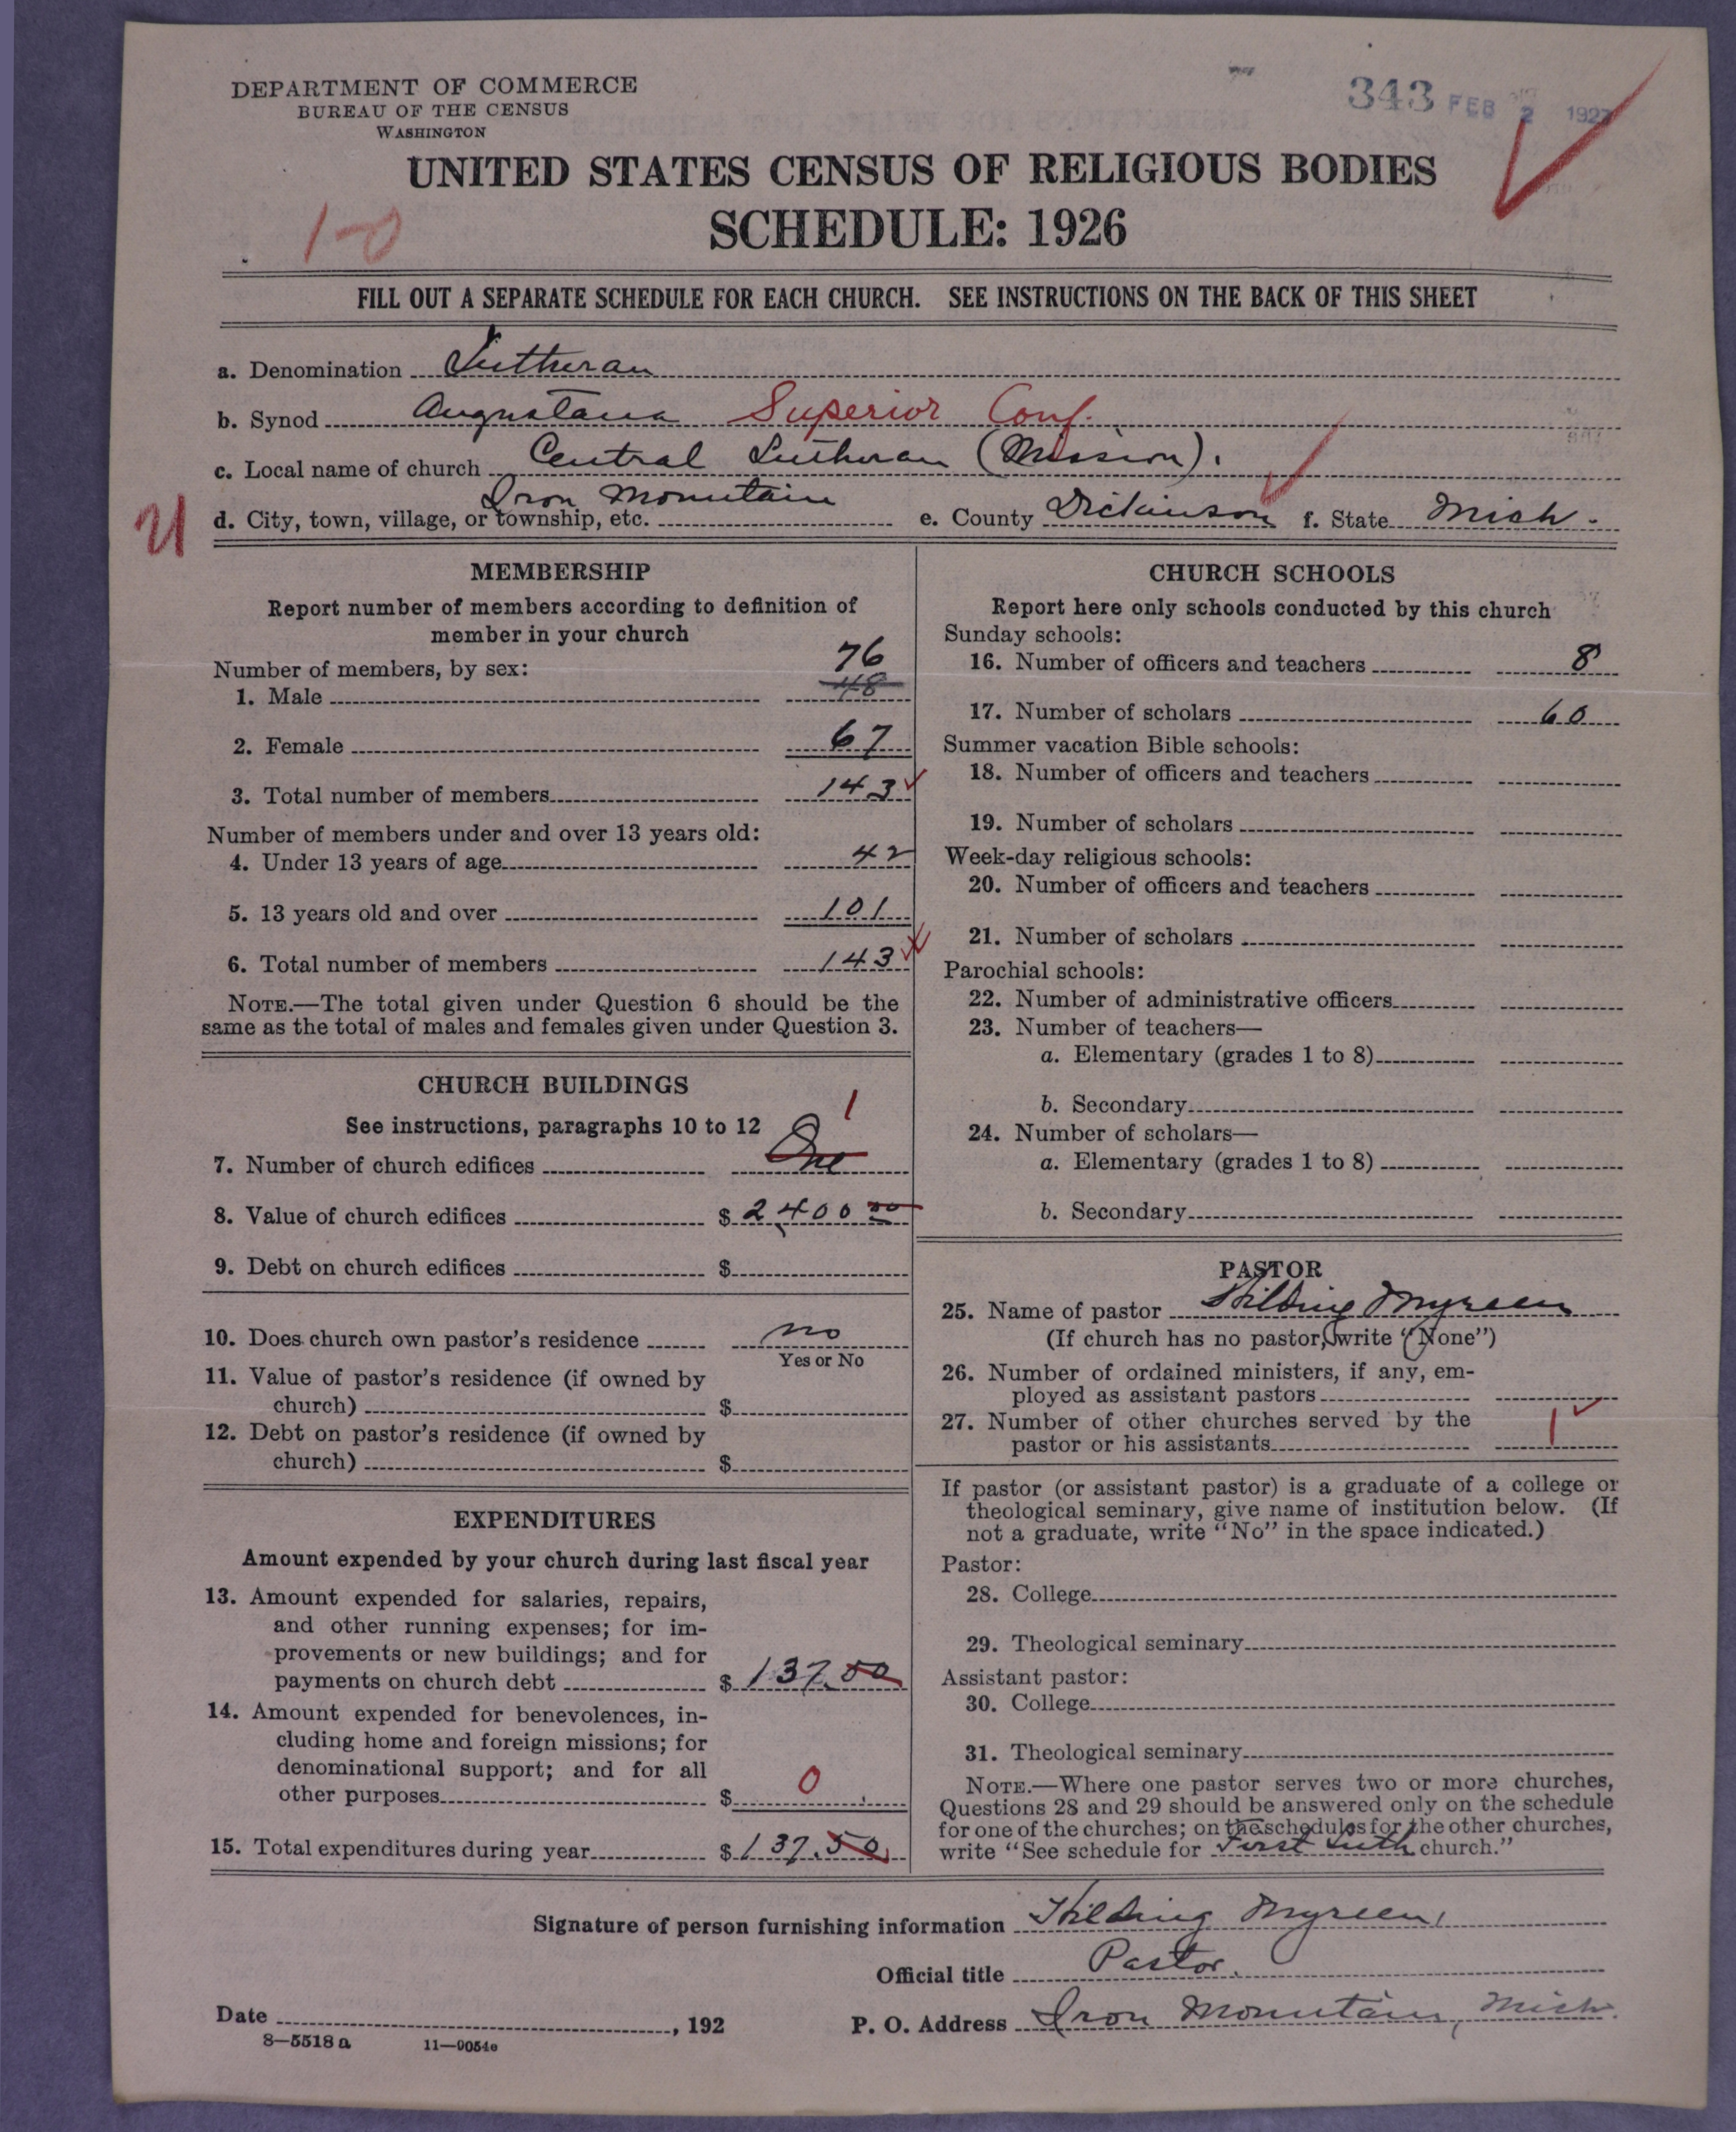 DEPARTMENT OF COMMERCE
BUREAU OF THE CENSUS
WASHINGTON
343 FEB 2 1927
UNITED STATES CENSUS OF RELIGIOUS BODIES
SCHEDULE: 1926
1-0
FILL OUT A SEPARATE SCHEDULE FOR EACH CHURCH. SEE INSTRUCTIONS ON THE BACK OF THIS SHEET
a. Denomination Lutheran
b. Synod Augustana Superior Conf.
c. Local name of church Central Lutheran (Mission).
d. City, town, village, or township, etc. Iron Mountain e. County Dickinson f. State Mich.
MEMBERSHIP
Report number of members according to definition of
member in your church
Number of members, by sex:
76
1. Male 48
2. Female 67
3. Total number of members 143
Number of members under and over 13 years old:
4. Under 13 years of age 42
5. 13 years old and over 101
6. Total number of members 143
NOTE.—The total given under Question 6 should be the
same as the total of males and females given under Question 3.
CHURCH BUILDINGS
See instructions, paragraphs 10 to 12
1
7. Number of church edifices One
8. Value of church edifices $ 2,400 00
9. Debt on church edifices $
10. Does church own pastor's residence no
Yes or No
11. Value of pastor's residence (if owned by
church) $
12. Debt on pastor's residence (if owned by
church) $
EXPENDITURES
Amount expended by your church during last fiscal year
13. Amount expended for salaries, repairs,
and other running expenses; for im-
provements or new buildings; and for
payments on church debt $ 137.50
14. Amount expended for benevolences, in-
cluding home and foreign missions; for
denominational support; and for all
other purposes $ 0
15. Total expenditures during year $ 137.50
CHURCH SCHOOLS
Report here only schools conducted by this church
Sunday schools:
16. Number of officers and teachers 8
17. Number of scholars 60
Summer vacation Bible schools:
18. Number of officers and teachers
19. Number of scholars
Week-day religious schools:
20. Number of officers and teachers
21. Number of scholars
Parochial schools:
22. Number of administrative officers
23. Number of teachers—
a. Elementary (grades 1 to 8)
b. Secondary
24. Number of scholars—
a. Elementary (grades 1 to 8)
b. Secondary
PASTOR
25. Name of pastor Hilding Myreen
(If church has no pastor, write "None")
26. Number of ordained ministers, if any, em-
ployed as assistant pastors
27. Number of other churches served by the
pastor or his assistants 1
If pastor (or assistant pastor) is a graduate of a college or
theological seminary, give name of institution below. (If
not a graduate, write "No" in the space indicated.)
Pastor:
28. College
29. Theological seminary
Assistant pastor:
30. College
31. Theological seminary
NOTE.—Where one pastor serves two or more churches,
Questions 28 and 29 should be answered only on the schedule
for one of the churches; on the schedules for the other churches,
write "See schedule for First Luth church."
Signature of person furnishing information Hilding Myreen,
Official title Pastor.
Date , 192
P. O. Address Iron Mountain, Mich.
8—5518 a 11—9054e